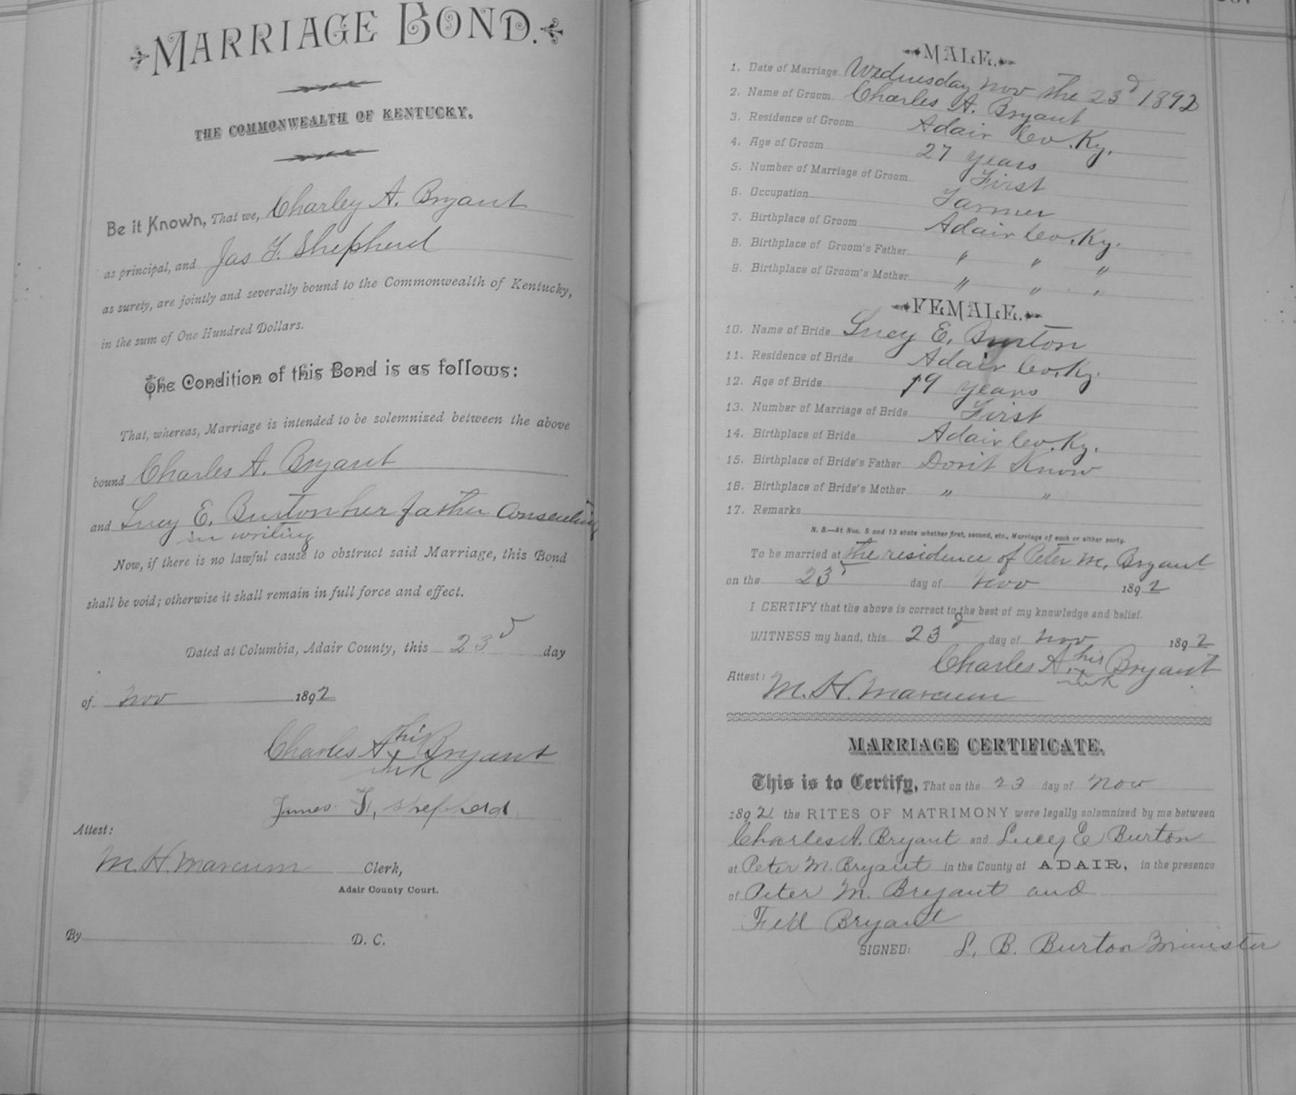 MARRIAGE BOND.
THE COMMONWEALTH OF KENTUCKY.
Be it Known, That we, Charley A. Bryant
as principal, and Jas T. Shepherd
as surety, are jointly and severally bound to the Commonwealth of Kentucky,
in the sum of One Hundred Dollars.
The Condition of this Bond is as follows:
That, whereas, Marriage is intended to be solemnized between the above
bound Charles A. Bryant
and Lucy E. Burton her father consenting
in writing
Now, if there is no lawful cause to obstruct said Marriage, this Bond
shall be void; otherwise it shall remain in full force and effect.
Dated at Columbia, Adair County, this 23d day
of Nov 1892
Charles A. his Bryant
mk
James T. Shepherd
Attest:
M. H. Marcum Clerk,
Adair County Court.
By D. C.
MALE.
1. Date of Marriage Wednesday Nov the 23d 1892
2. Name of Groom Charles A. Bryant
3. Residence of Groom Adair Co. Ky.
4. Age of Groom 27 years
5. Number of Marriage of Groom First
6. Occupation Farmer
7. Birthplace of Groom Adair Co. Ky.
8. Birthplace of Groom's Father " " "
9. Birthplace of Groom's Mother " " "
FEMALE.
10. Name of Bride Lucy E. Burton
11. Residence of Bride Adair Co. Ky.
12. Age of Bride 19 years
13. Number of Marriage of Bride First
14. Birthplace of Bride Adair Co. Ky.
15. Birthplace of Bride's Father Don't Know
16. Birthplace of Bride's Mother " "
17. Remarks
N. B.—At Nos. 5 and 13 state whether first, second, etc., Marriage of each or either party.
To be married at the residence of Peter M. Bryant
on the 23d day of Nov 1892
I CERTIFY that the above is correct to the best of my knowledge and belief.
WITNESS my hand, this 23d day of Nov 1892
Charles A. his Bryant
mk
Attest: M. H. Marcum
MARRIAGE CERTIFICATE.
This is to Certify, That on the 23 day of Nov
1892 the RITES OF MATRIMONY were legally solemnized by me between
Charles A. Bryant and Lucy E Burton
at Peter M. Bryant in the County of ADAIR, in the presence
of Peter M. Bryant and
Bryant
SIGNED: B. Burton Minister